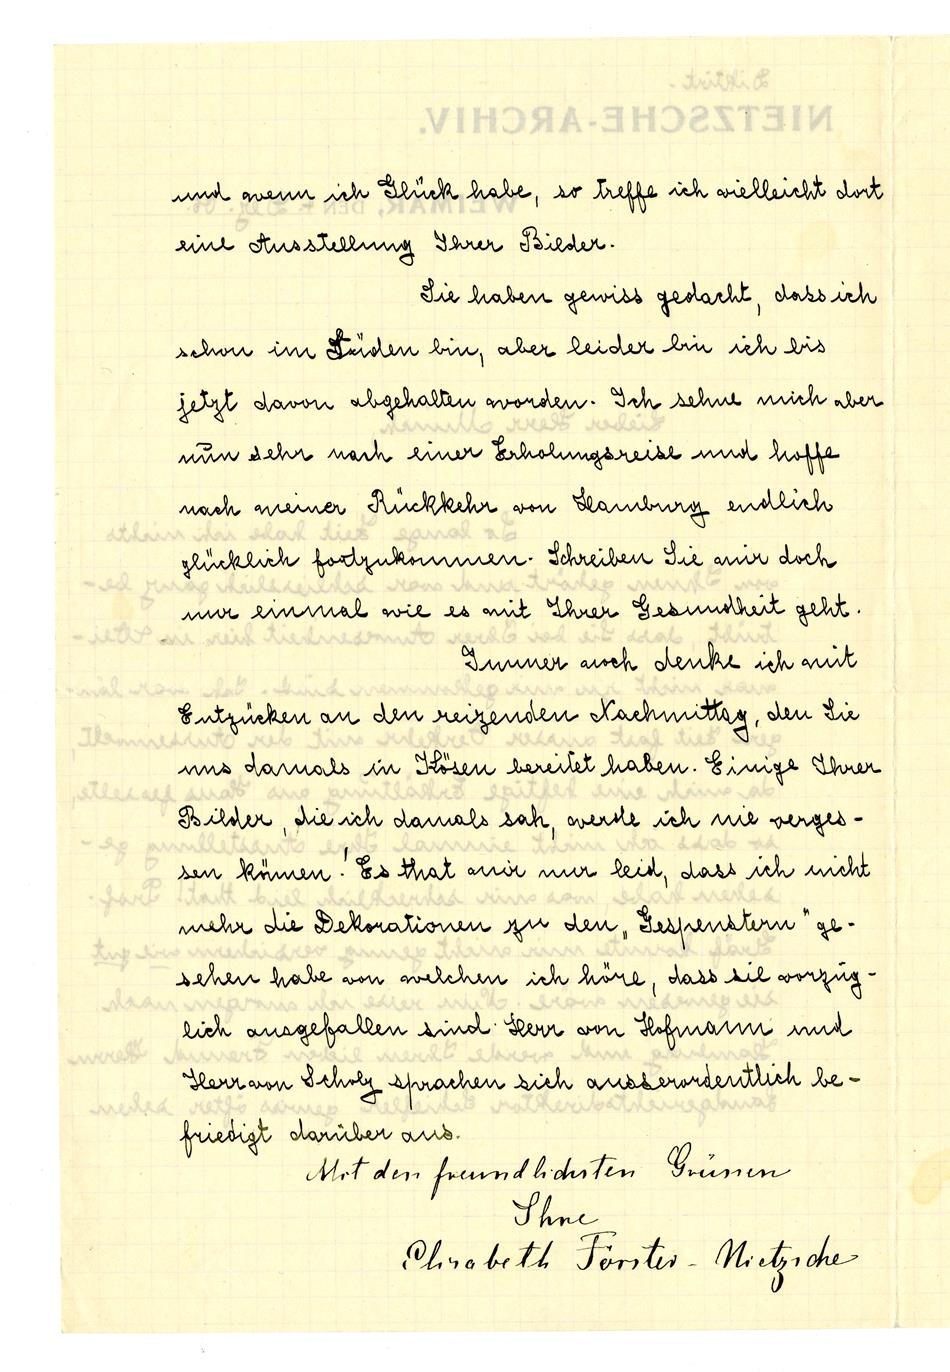 und wenn ich Glück habe, so treffe ich vielleicht dort
eine Ausstellung Ihrer Bilder.
Sie haben gewiss gedacht, dass ich
schon im Süden bin, aber leider bin ich bis
jetzt davon abgehalten worden. Ich sehne mich aber
nun sehr nach einer Erholungsreise und hoffe
nach meiner Rückkehr von Hamburg endlich
glücklich fortzukommen. Schreiben Sie mir doch
nur einmal wie es mit Ihrer Gesundheit geht.
Immer noch denke ich mit
Entzücken an den reizenden Nachmittag, den Sie
uns damals in Kösen bereitet haben. Einige Ihrer
Bilder, die ich damals sah, werde ich nie verges-
sen können! Es that mir nur leid, dass ich nicht
mehr die Dekorationen zu den „Gespenstern" ge-
sehen habe von welchen ich höre, dass sie vorzüg-
lich ausgefallen sind. Herr von Hofmann und
Herr von Scholz sprachen sich ausserordentlich be-
friedigt darüber aus.
Mit den freundlichsten Grüssen
Ihre
Elisabeth Förster-Nietzsche